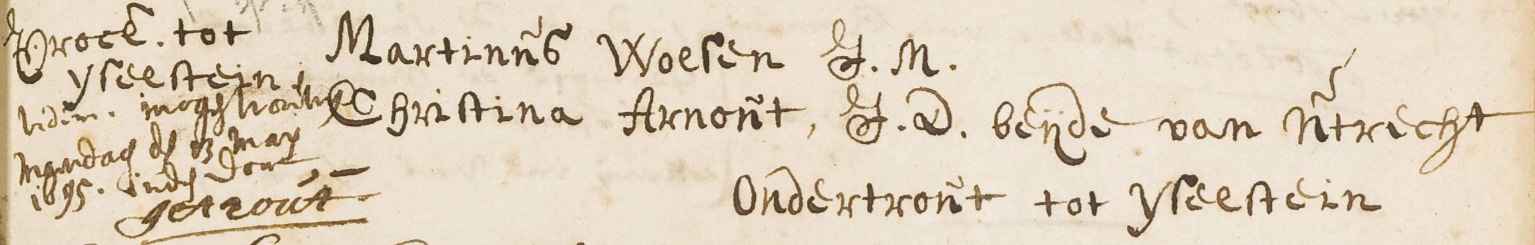 Procl. tot
Yselstein
item. mogen trouwen
Maendag den 13 May
1695. inden Dom
getrout
Martinus Woesen J. M.
Christina Arnout, J. D. beijde van Utrecht
Ondertrout tot Yselstein